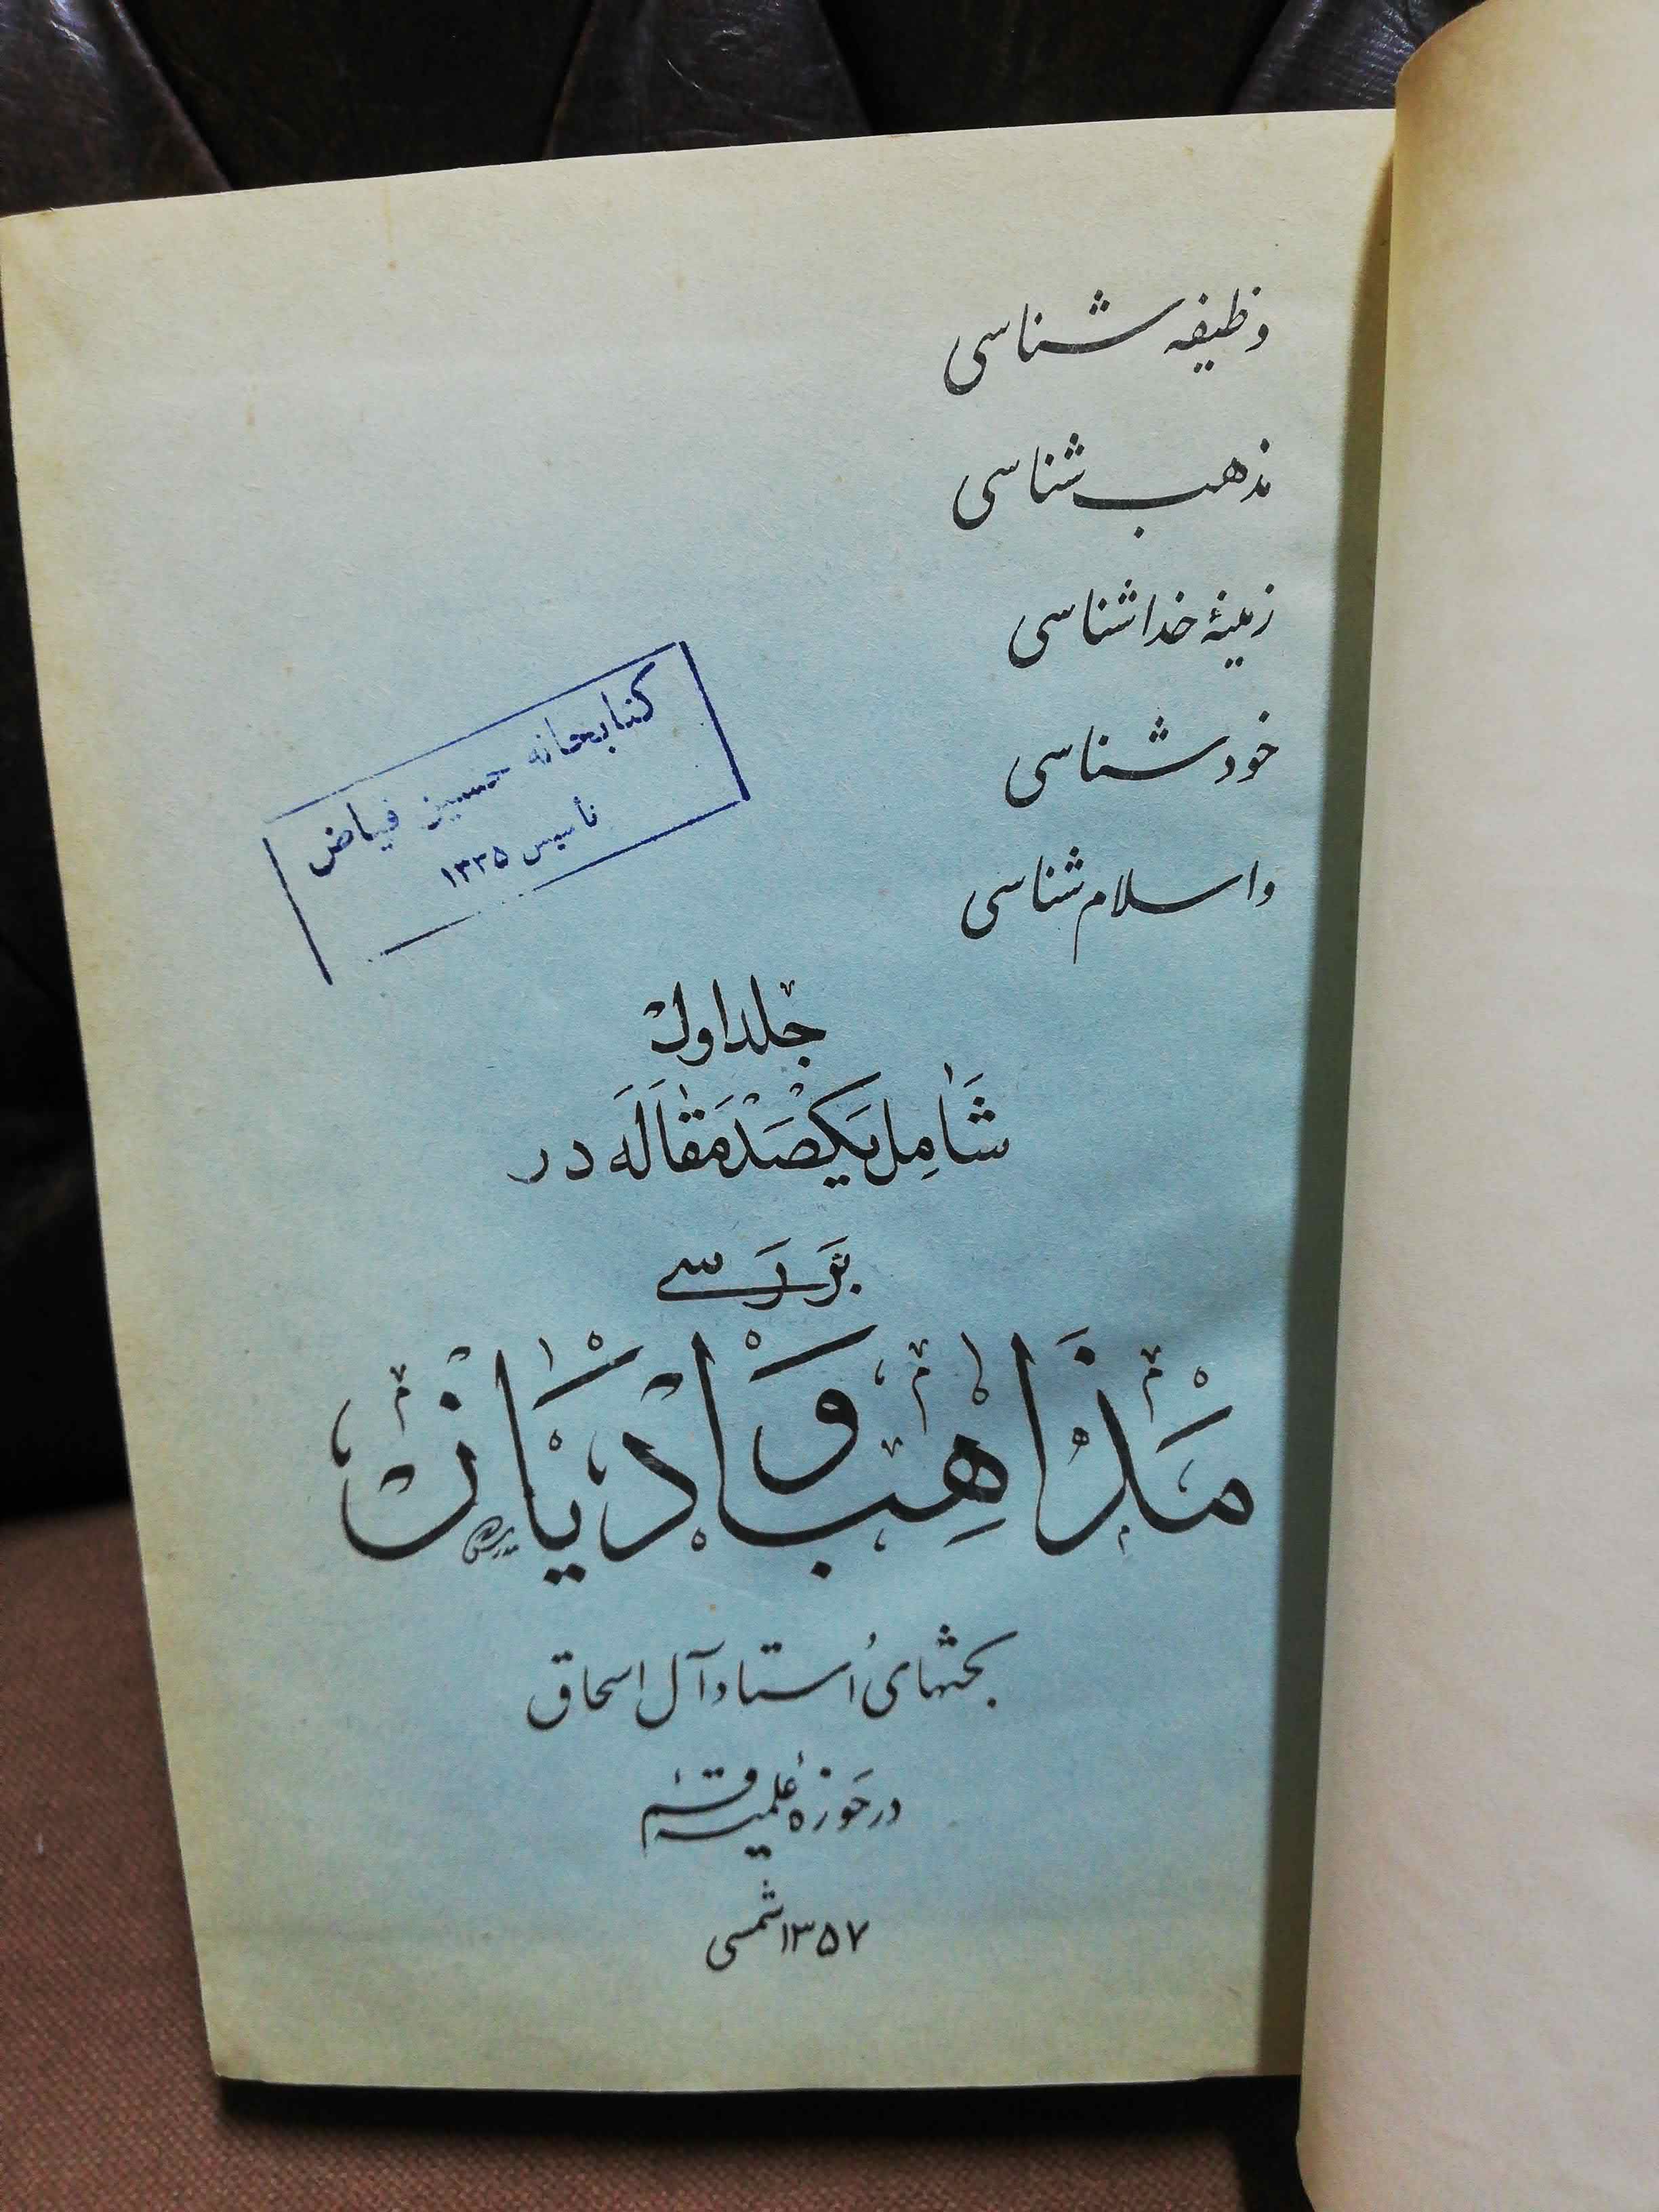 وظیفه شناسی
مذهب شناسی
زمینهٔ خداشناسی
خودشناسی
واسلام شناسی
کتابخانه حسین فیاض
تأسیس ۱۳۳۵
جلد اول
شَامِل یَکصَدْ مَقالَه در
بَرَرسے
مَذاهِب وَ ادیَان
بحثهای اُستاد آل اسحاق
در حَوزه عُلمیه قم
۱۳۵۷ شمسی